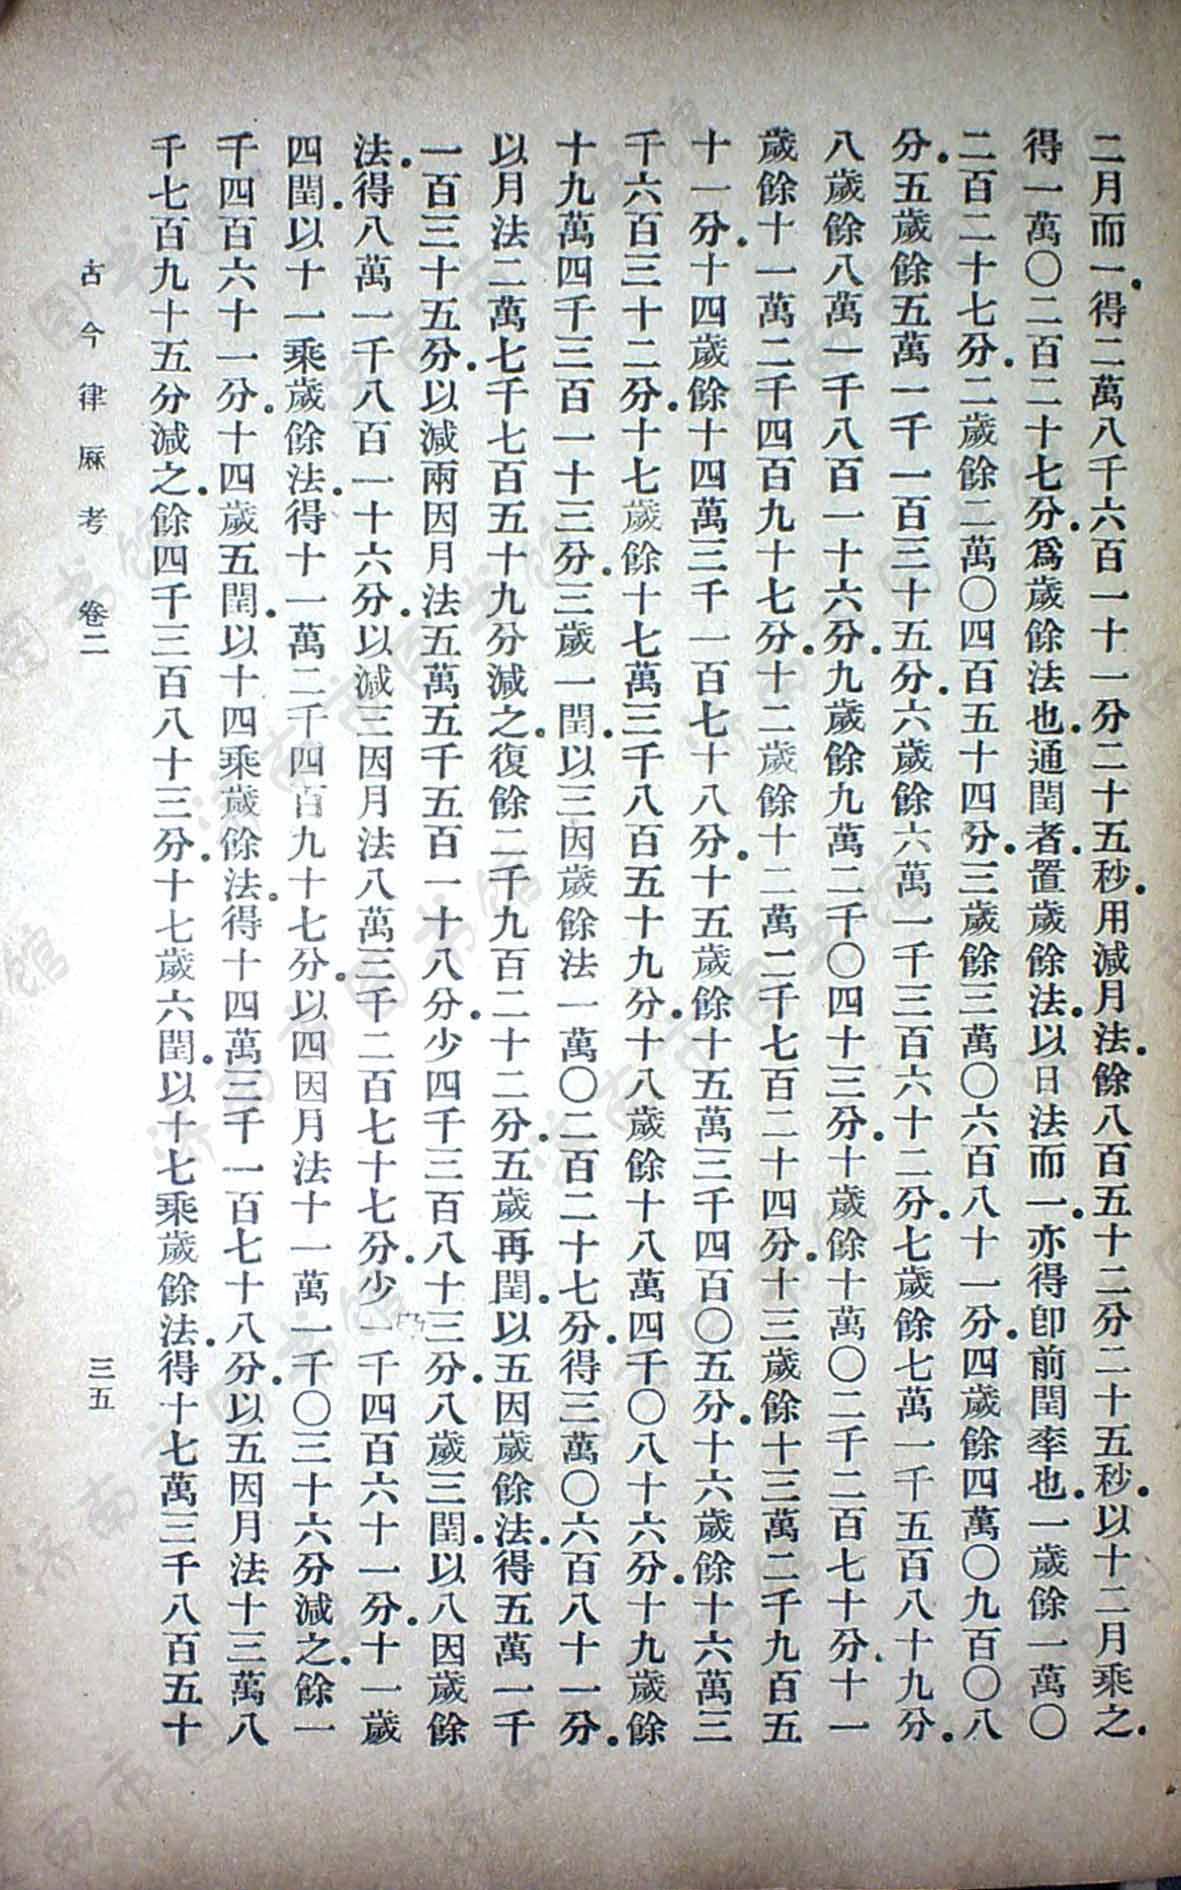 二月而一。得二萬八千六百一十一分二十五秒。用減月法。餘八百五十二分二十五秒。以十二月乘之。
得一萬〇二百二十七分。爲歲餘法也。通閏者。置歲餘法。以日法而一。亦得卽前閏率也。一歲餘一萬〇
二百二十七分。二歲餘二萬〇四百五十四分。三歲餘三萬〇六百八十一分。四歲餘四萬〇九百〇八
分。五歲餘五萬一千一百三十五分。六歲餘六萬一千三百六十二分。七歲餘七萬一千五百八十九分。
八歲餘八萬一千八百一十六分。九歲餘九萬二千〇四十三分。十歲餘十萬〇二千二百七十分。十一
歲餘十一萬二千四百九十七分。十二歲餘十二萬二千七百二十四分。十三歲餘十三萬二千九百五
十一分。十四歲餘十四萬三千一百七十八分。十五歲餘十五萬三千四百〇五分。十六歲餘十六萬三
千六百三十二分。十七歲餘十七萬三千八百五十九分。十八歲餘十八萬四千〇八十六分。十九歲餘
十九萬四千三百一十三分。三歲一閏。以三因歲餘法一萬〇二百二十七分。得三萬〇六百八十一分。
以月法二萬七千七百五十九分減之。復餘二千九百二十二分。五歲再閏。以五因歲餘法。得五萬一千
一百三十五分。以減兩因月法五萬五千五百一十八分。少四千三百八十三分。八歲三閏。以八因歲餘
法。得八萬一千八百一十六分。以減三因月法八萬三千二百七十七分。少一千四百六十一分。十一歲
四閏。以十一乘歲餘法。得十一萬二千四百九十七分。以四因月法十一萬一千〇三十六分減之。餘一
千四百六十一分。十四歲五閏。以十四乘歲餘法。得十四萬三千一百七十八分。以五因月法十三萬八
千七百九十五分減之。餘四千三百八十三分。十七歲六閏。以十七乘歲餘法。得十七萬三千八百五十
古今律厤考 卷二 三五